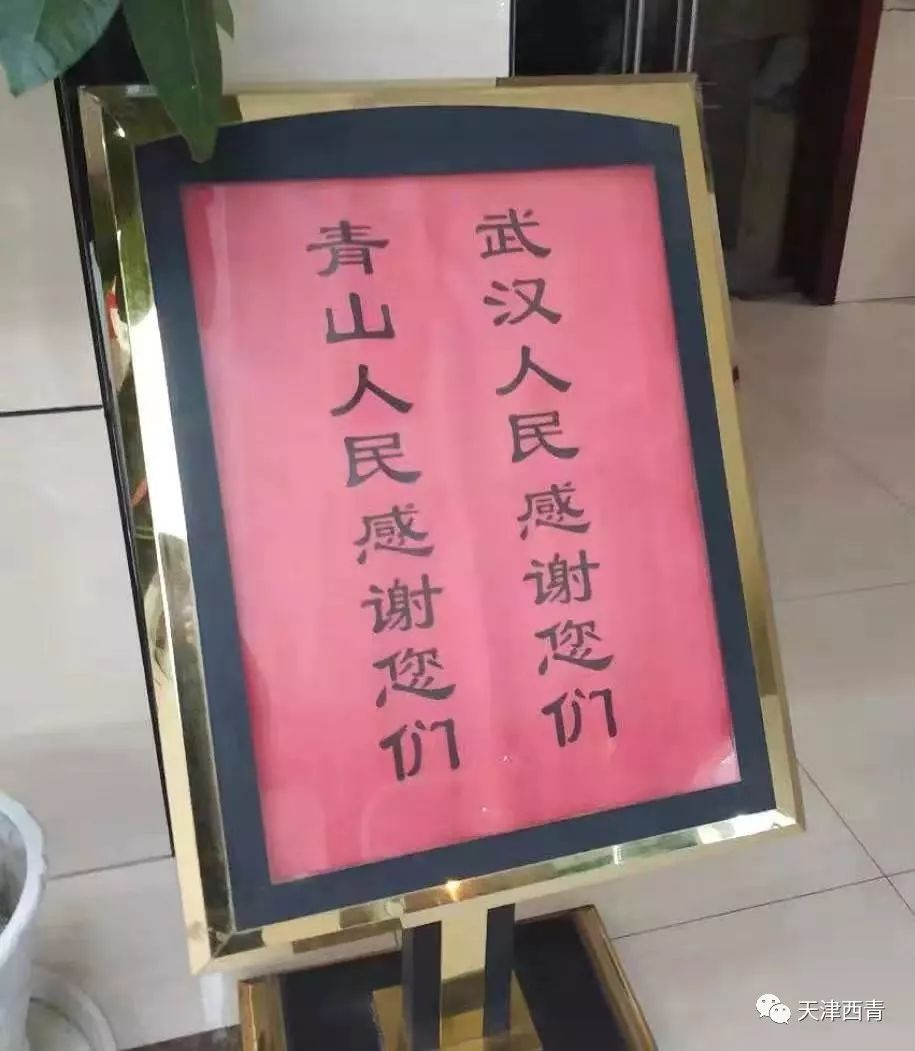 武汉人民感谢您们
青山人民感谢您们
天津西青